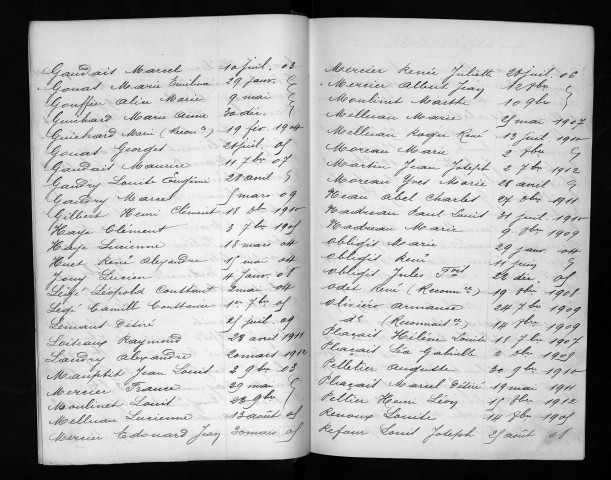 Gaudais Marcel 10 juil. 03
Gouas Marie Emilina 29 janv. "
Gouffier Alice Marie 9 mai "
Guichard Marie Anne 30 déc. "
Guichard Marie (Recon ce) 19 fév. 1904
Gouas Georges 05
Gaudais Maurice 11 7bre 07
Gaudry Louise Eugénie 28 avril "
Gaudry Marcel 5 mars 09
Gilbert Henri Clément 18 8bre 1910
Haye Clément 3 7bre 1905
Haye Lucienne 18 mars 04
Huet René Alexandre 15 mai 04
Jouy Lucien 4 janv. 08
Légé Léopold Constant 2 mai 04
Légé Camille Constance 1er 7bre 05
Lemant Désiré 25 juil. 09
Loiteaux Raymond 23 avril 1911
Liandry Alexandre 20 mars 1912
Maupetit Jean Louis 2 9bre 03
Mercier France 29 mai "
Moulinet Louis 22 9bre "
Melluau Lucienne 13 août 05
Mercier Edouard Jean 30 mars 05
Mercier René Juliette 20 juil. 06
Mercier Albert Jean 12 7bre "
Moulinet Marthe 10 9bre "
Melluau Marie 25 mai 1907
Melluau Roger René 13 juil. 1910
Moreau Marie 2 7bre "
Martin Jean Joseph 2 7bre 1912
Moreau Yves Marie 28 avril "
Neau Abel Charles 27 8bre 1911
Nadreau Paul Louis 31 juil. 1910
Nadreau Marie 9 8bre 1909
Obligis Marie 29 janv. 04
Obligis René 11 juin "
Obligis Jules 22 déc. 05
Odet René (Reconn ce) 19 8bre 1908
Olivier Armance 24 7bre 1909
do (Reconnais ce) 14 8bre 1909
Plaçais Hélène Louise 11 7bre 1907
Plaçais Léa Gabrielle 2 8bre 1909
Pelletier Auguste 20 9bre 1910
Plaçais Marcel Désiré 19 mai 1911
Peltier Henri Léon 15 8bre 1912
Renoux Louise 14 7bre 1905
Refour Louis Joseph 25 août 08